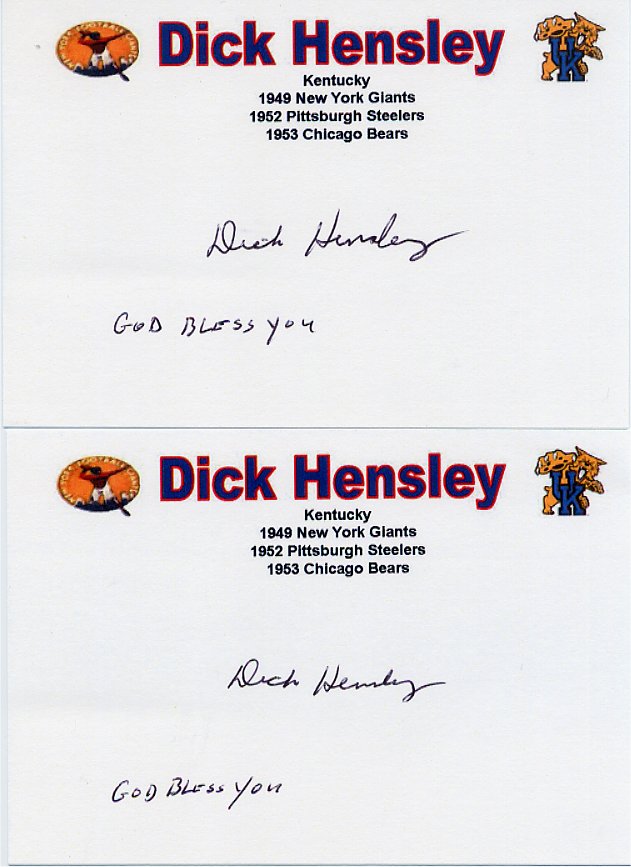 Dick Hensley
Kentucky
1949 New York Giants
1952 Pittsburgh Steelers
1953 Chicago Bears
Dick Hensley
GOD BLESS YOU
Dick Hensley
UK
Kentucky
1949 New York Giants
1952 Pittsburgh Steelers
1953 Chicago Bears
Dick Hensley
GOD BLESS YOU